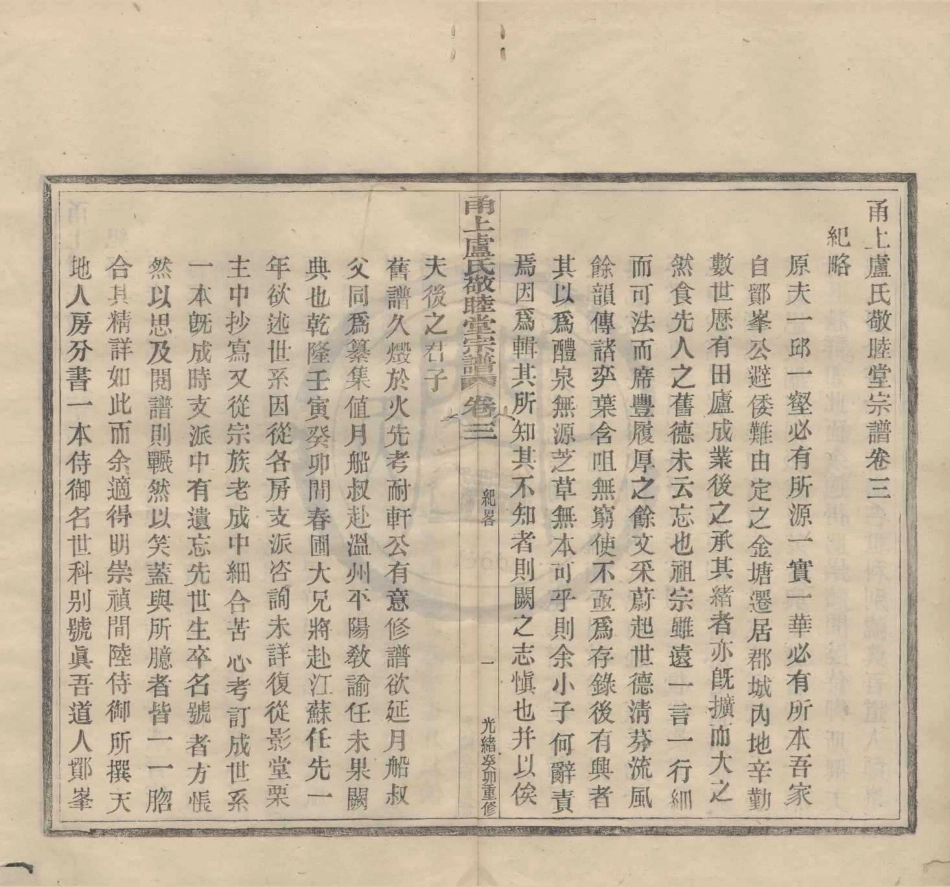 甬上盧氏敬睦堂宗譜卷三
紀略
原夫一邱一壑必有所源一實一華必有所本吾家
自鄮峯公避倭難由定之金塘遷居郡城內地辛勤
數世歷有田廬成業後之承其緒者亦旣擴而大之
然食先人之舊德未云忘也祖宗雖遠一言一行細
而可法而席豐履厚之餘文采蔚起世德淸芬流風
餘韻傳諸弈葉含咀無窮使不亟爲存錄後有興者
其以爲醴泉無源芝草無本可乎則余小子何辭責
焉因爲輯其所知其不知者則闕之志愼也并以俟
甬上盧氏敬睦堂宗譜 卷三 紀畧 一 光緒癸卯重修
夫後之君子
舊譜久燬於火先考耐軒公有意修譜欲延月船叔
父同爲纂集值月船叔赴溫州平陽敎諭任未果闕
典也乾隆壬寅癸卯間春圃大兄將赴江蘇任先一
年欲述世系因從各房支派咨詢未詳復從影堂栗
主中抄寫又從宗族老成中細合苦心考訂成世系
一本旣成時支派中有遺忘先世生卒名號者方悵
然以思及閱譜則囅然以笑蓋與所臆者皆一一脗
合其精詳如此而余適得明崇禎間陸侍御所撰天
地人房分書一本侍御名世科别號眞吾道人鄮峯